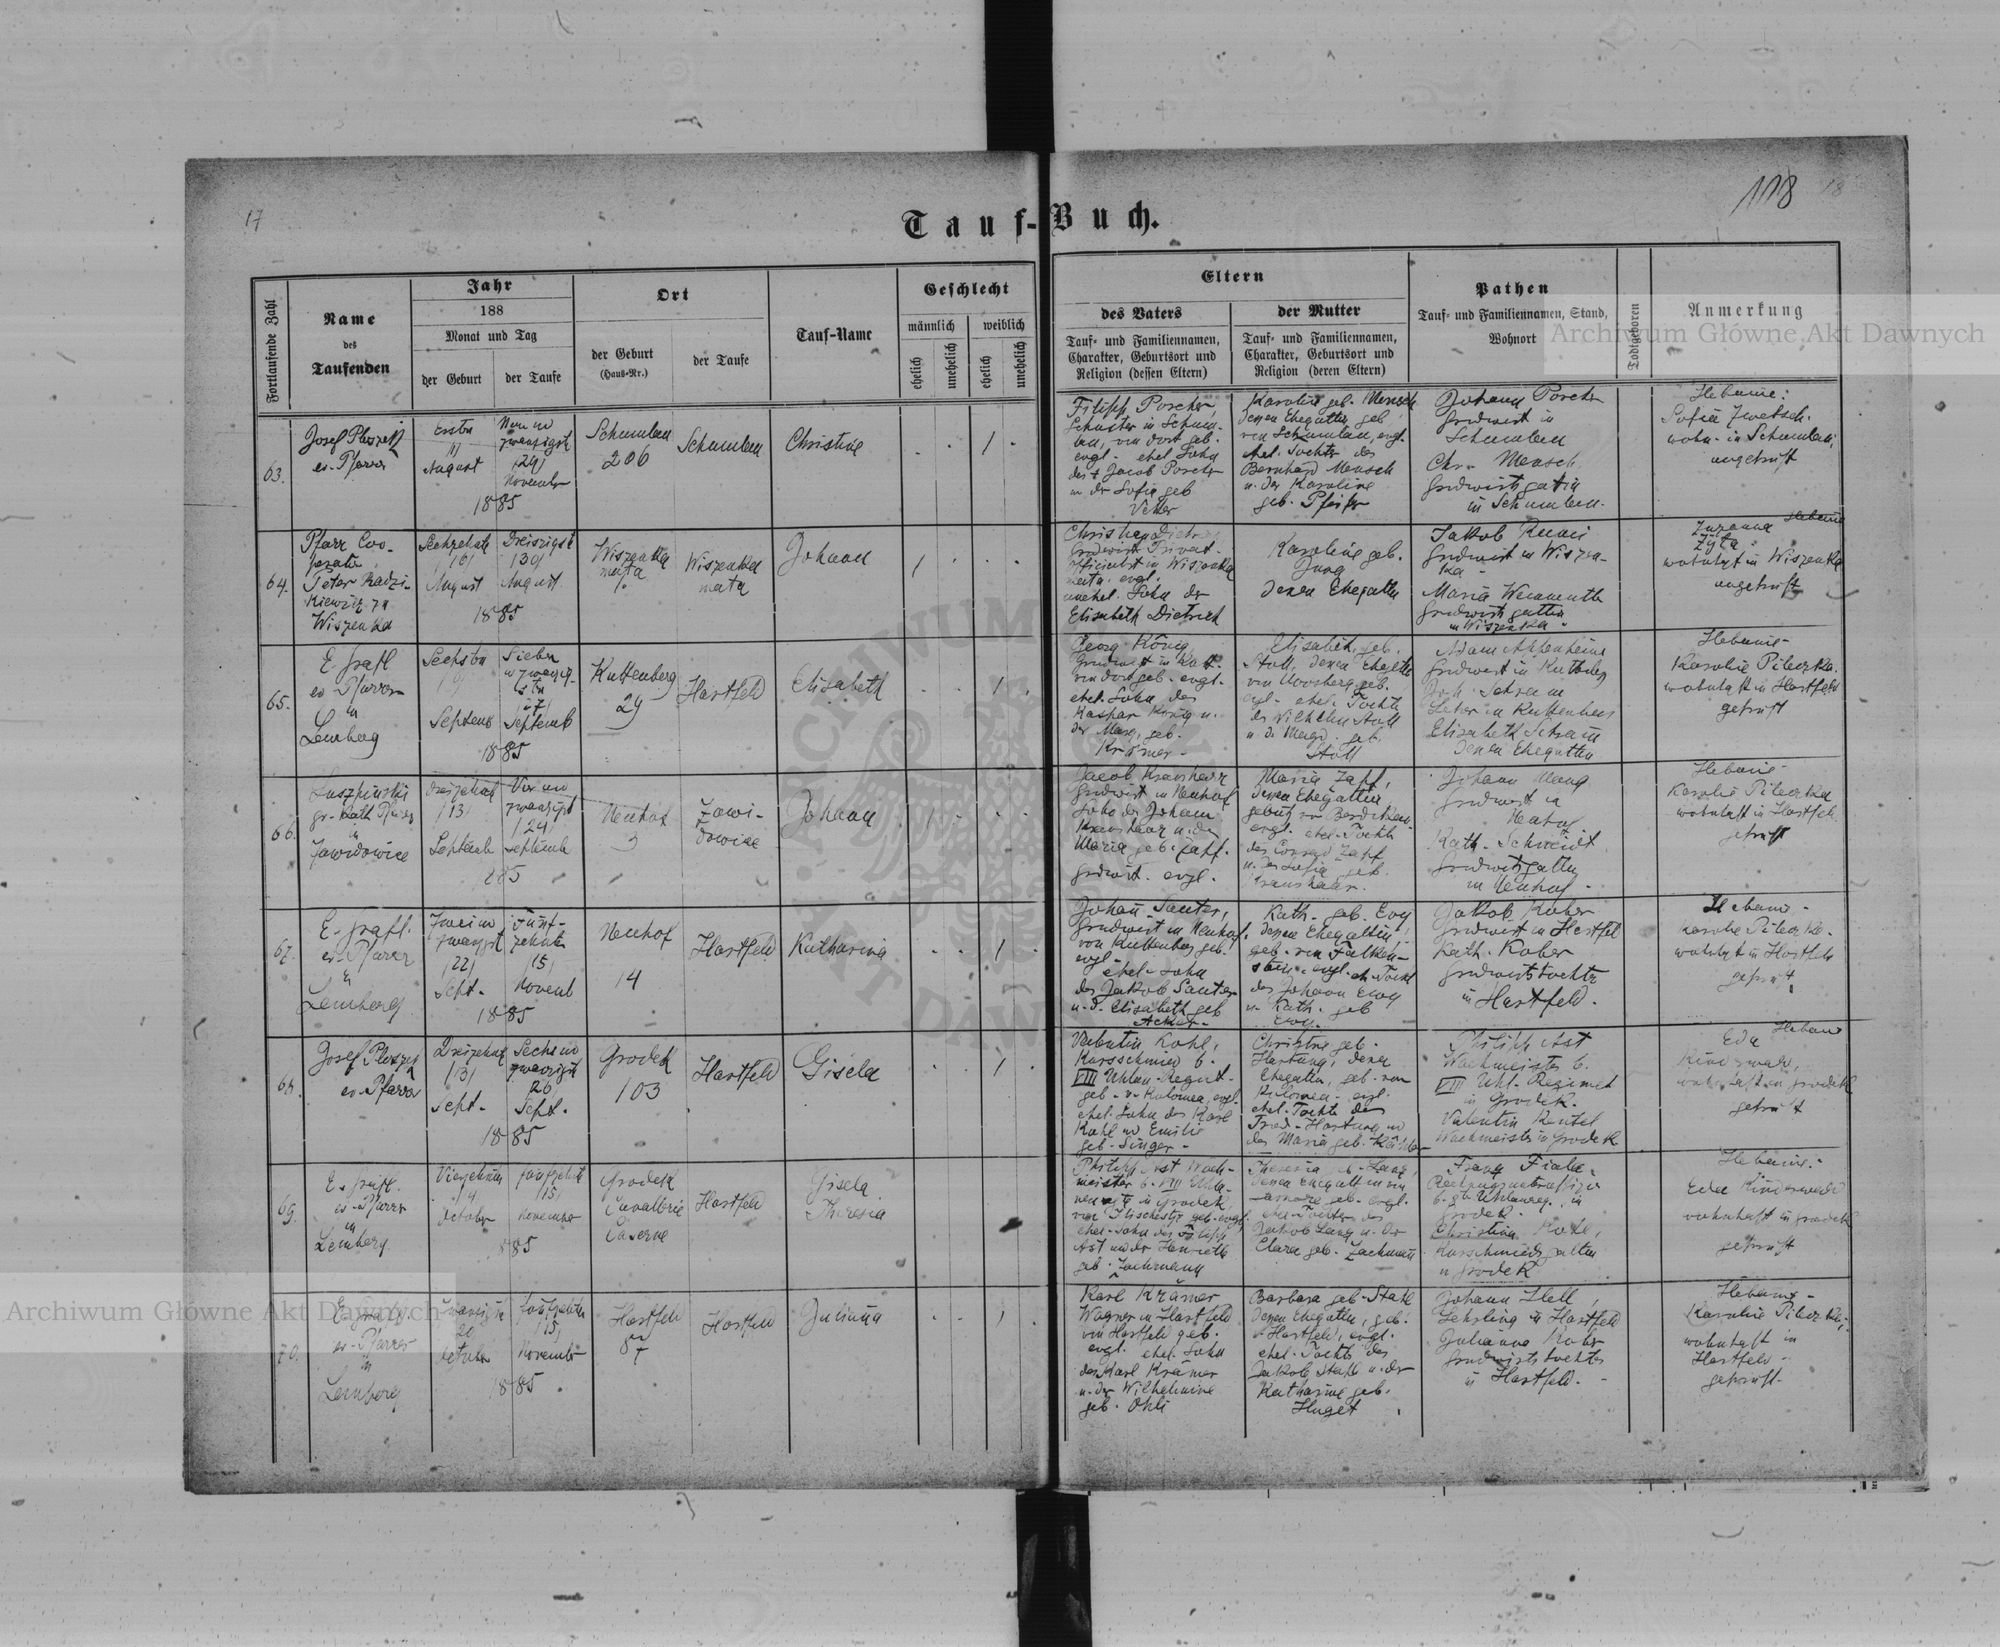 17
118
18
Tauf-Buch.
Fortlaufende Zahl
Name
des
Taufenden
Jahr
188
Monat und Tag
der Geburt
der Taufe
Ort
der Geburt
(Haus-Nr.)
der Taufe
Tauf-Name
Geschlecht
männlich
weiblich
ehelich
unehelich
ehelich
unehelich
Eltern
des Vaters
Tauf- und Familiennamen,
Charakter, Geburtsort und
Religion (dessen Eltern)
der Mutter
Tauf- und Familiennamen,
Charakter, Geburtsort und
Religion (deren Eltern)
Pathen
Tauf- und Familiennamen, Stand,
Wohnort
Todtgeboren
Anmerkung
Archiwum Główne Akt Dawnych
63.
Josef
ev. Pfarrer
Erster
August
(29)
November
1885
Schumlau
206
Schumlau
Christine
1
Filipp Porcher,
Schuster in Schum-
lau, von dort geb.
evgl. ehel. Sohn
des + Jacob Porcher
u. der Sofia geb.
Karolin geb. Mensch
deren Ehegattin, geb.
von Schumlau, evgl.
ehel. Tochter des
Bernhard Mensch
u. der Karoline
geb. Pfeifer
Johann Porcher
Grndwirt in
Schumlau
Chr. Mensch
Grndwirtsgattin
in Schumlau.
Hebamme:
Sofia
wohn. in Schumlau,
64.
Pfarr Coo-
perator
Peter Radzi-
kiewicz zu
Wiszenka
Sechzehnte
16)
August
Dreiszigst
(30)
August
1885
Wiszenka
Wiszenka
Johann
1
Christian Dietrich
in Wiszenka
evgl.
unehel. Sohn der
Elisabeth Dietrich
Karoline geb.
Jung
deren Ehegattin
Jakob
Grndwirt in Wiszen-
ka
Maria
Grndwirtsgattin
in Wiszenka.
Hebamme
Zuzanna
Zyta
wohnhaft in Wiszenka
ungeprüft
65.
E. Grafl
ev. Pfarrer
in
Lemberg
Sechster
Septemb
Sieben
Septemb
1885
Kuttenberg
29
Hartfeld
Elisabeth
1
Georg König,
Grndwirt in Kutt.
von dort geb. evgl.
ehel. Sohn des
Kaspar König u.
der Marg. geb.
Krämer
Elisabeth, geb.
Stoll, deren Ehegattin
geb.
evgl. ehel. Tochter
des Wilhelm Stoll
u. d. Margr. geb.
Stoll
Adam
Grndwirt in Kuttenberg
Joh. Schram
Lehrer in Kuttenberg
Elisabeth Schram
deren Ehegattin
Hebamme
Karolie Pileczka
wohnhaft in Hartfeld
geprüft
66.
gr. kath. Pfarrer
in
Zawidowice
Dreizehnt
(13)
Septemb
Vier und
zwanzigst
(24)
Septemb
1885
Neuhof
3
Zawi-
dowice
Johann
1
Jacob Kranshaar
Grndwirt in Neuhof
Sohn des Johann
Kranshaar u. der
Maria geb. Zapf.
Grndwirt. evgl.
Maria Zapf,
deren Ehegattin
evgl. ehel. Tochter
des Conrad Zapf
u. der Sofia geb.
Kranshaar.
Johann Mang
Grndwirt in
Neuhof
Kath. Schmidt
Grndwirtsgattin
in Neuhof.
Hebamme
Karolie Pileczka
wohnhaft in Hartfeld
geprüft
67.
E. Grafl.
ev. Pfarrer
in
Lemberg
Zwei u
zwanzigst
(22)
Sept.
Fünf-
zehnte
(15)
Novemb
1885
Neuhof
14
Hartfeld
Katharina
1
Johann Sauter,
Grndwirt in Neuhof,
von Kuttenberg geb.
evgl.
ehel. Sohn
des Jakob Sauter
u. d. Elisabeth geb
Acker
Kath. geb. Ewy
deren Ehegattin
geb. von Falken-
stein, evgl. eh. Tocht
des Johann Ewy
u. Kath. geb
Ewy.
Jakob Kober
Grndwirt in Hartfeld
Kath. Kober
Grndwirtstochter
in Hartfeld.
Hebamme
Karolie Pileczka
wohnhaft in Hartfeld
geprüft
68.
Josef
ev. Pfarrer
Dreizehnt
(13)
Sept.
Sechs u
zwanzigst
26)
Sept.
1885
Grodek
103
Hartfeld
Gisela
1
Valentin Kohl,
Kurschmied b.
VIII Uhlan. Regmt.
geb. v. Kolomea, evgl.
ehel. Sohn des Karl
Kohl und Emilie
geb. Singer
Christine geb.
Hartung, deren
Ehegattin, geb. von
Kolomea, evgl.
ehel. Tochter des
Fried. Hartung u
der Maria geb.
Philipp Ast
Wachmeister b.
VIII Uhl. Regiment
in Grodek.
Valentin
Wachmeister in Grodek
Hebamme
Eda
Kinderwald,
wohnhaft in Grodek
geprüft
69.
E. Grafl.
ev. Pfarrer
in
Lemberg
Vierzehnten
14
October
fünfzehnt
(15)
November
1885
Grodek
Cavallerie
Caserne
Hartfeld
Gisela
Theresia
1
Philipp Ast Wach-
meister b. VIII Uhla-
nen in Grodek,
geb. evgl.
ehel. Sohn des Filipp
Ast und der Henriette
geb. Zachmann
Theresia geb. Lang,
deren Ehegattin von
geb. evgl.
ehel. Tochter des
Jakob Lang u. der
Clara geb. Zachmann
Franz Fiala,
b. 8ten Uhlanreg. in
Grodek.
Christina Kohl,
Kurschmiedsgattin
in Grodek
Hebamme
Eda Kinderwald
wohnhaft in Grodek
geprüft
70.
E. Grafl.
ev. Pfarrer
in
Lemberg
Zwanzigst
20
October
fünfzehnten
(15)
November
1885
Hartfeld
87
Hartfeld
Julianna
1
Karl Krämer
Wagner in Hartfeld
von Hartfeld geb.
evgl. ehel. Sohn
des Karl Krämer
u. der Wilhelmine
geb. Ohli
Barbara geb. Stahl
deren Ehegattin, geb.
v. Hartfeld, evgl.
ehel. Tocht. des
Jakob Stahl u. der
Katharine geb.
Huget
Johann Stell,
Lehrling in Hartfeld
Julianna Kober
Grundwirtstochter
in Hartfeld.
Hebamme
Karolie Pileczka,
wohnhaft in
Hartfeld
geprüft.
Archiwum Główne Akt Dawnych
ARCHIWUM
AKT DAWNYCH